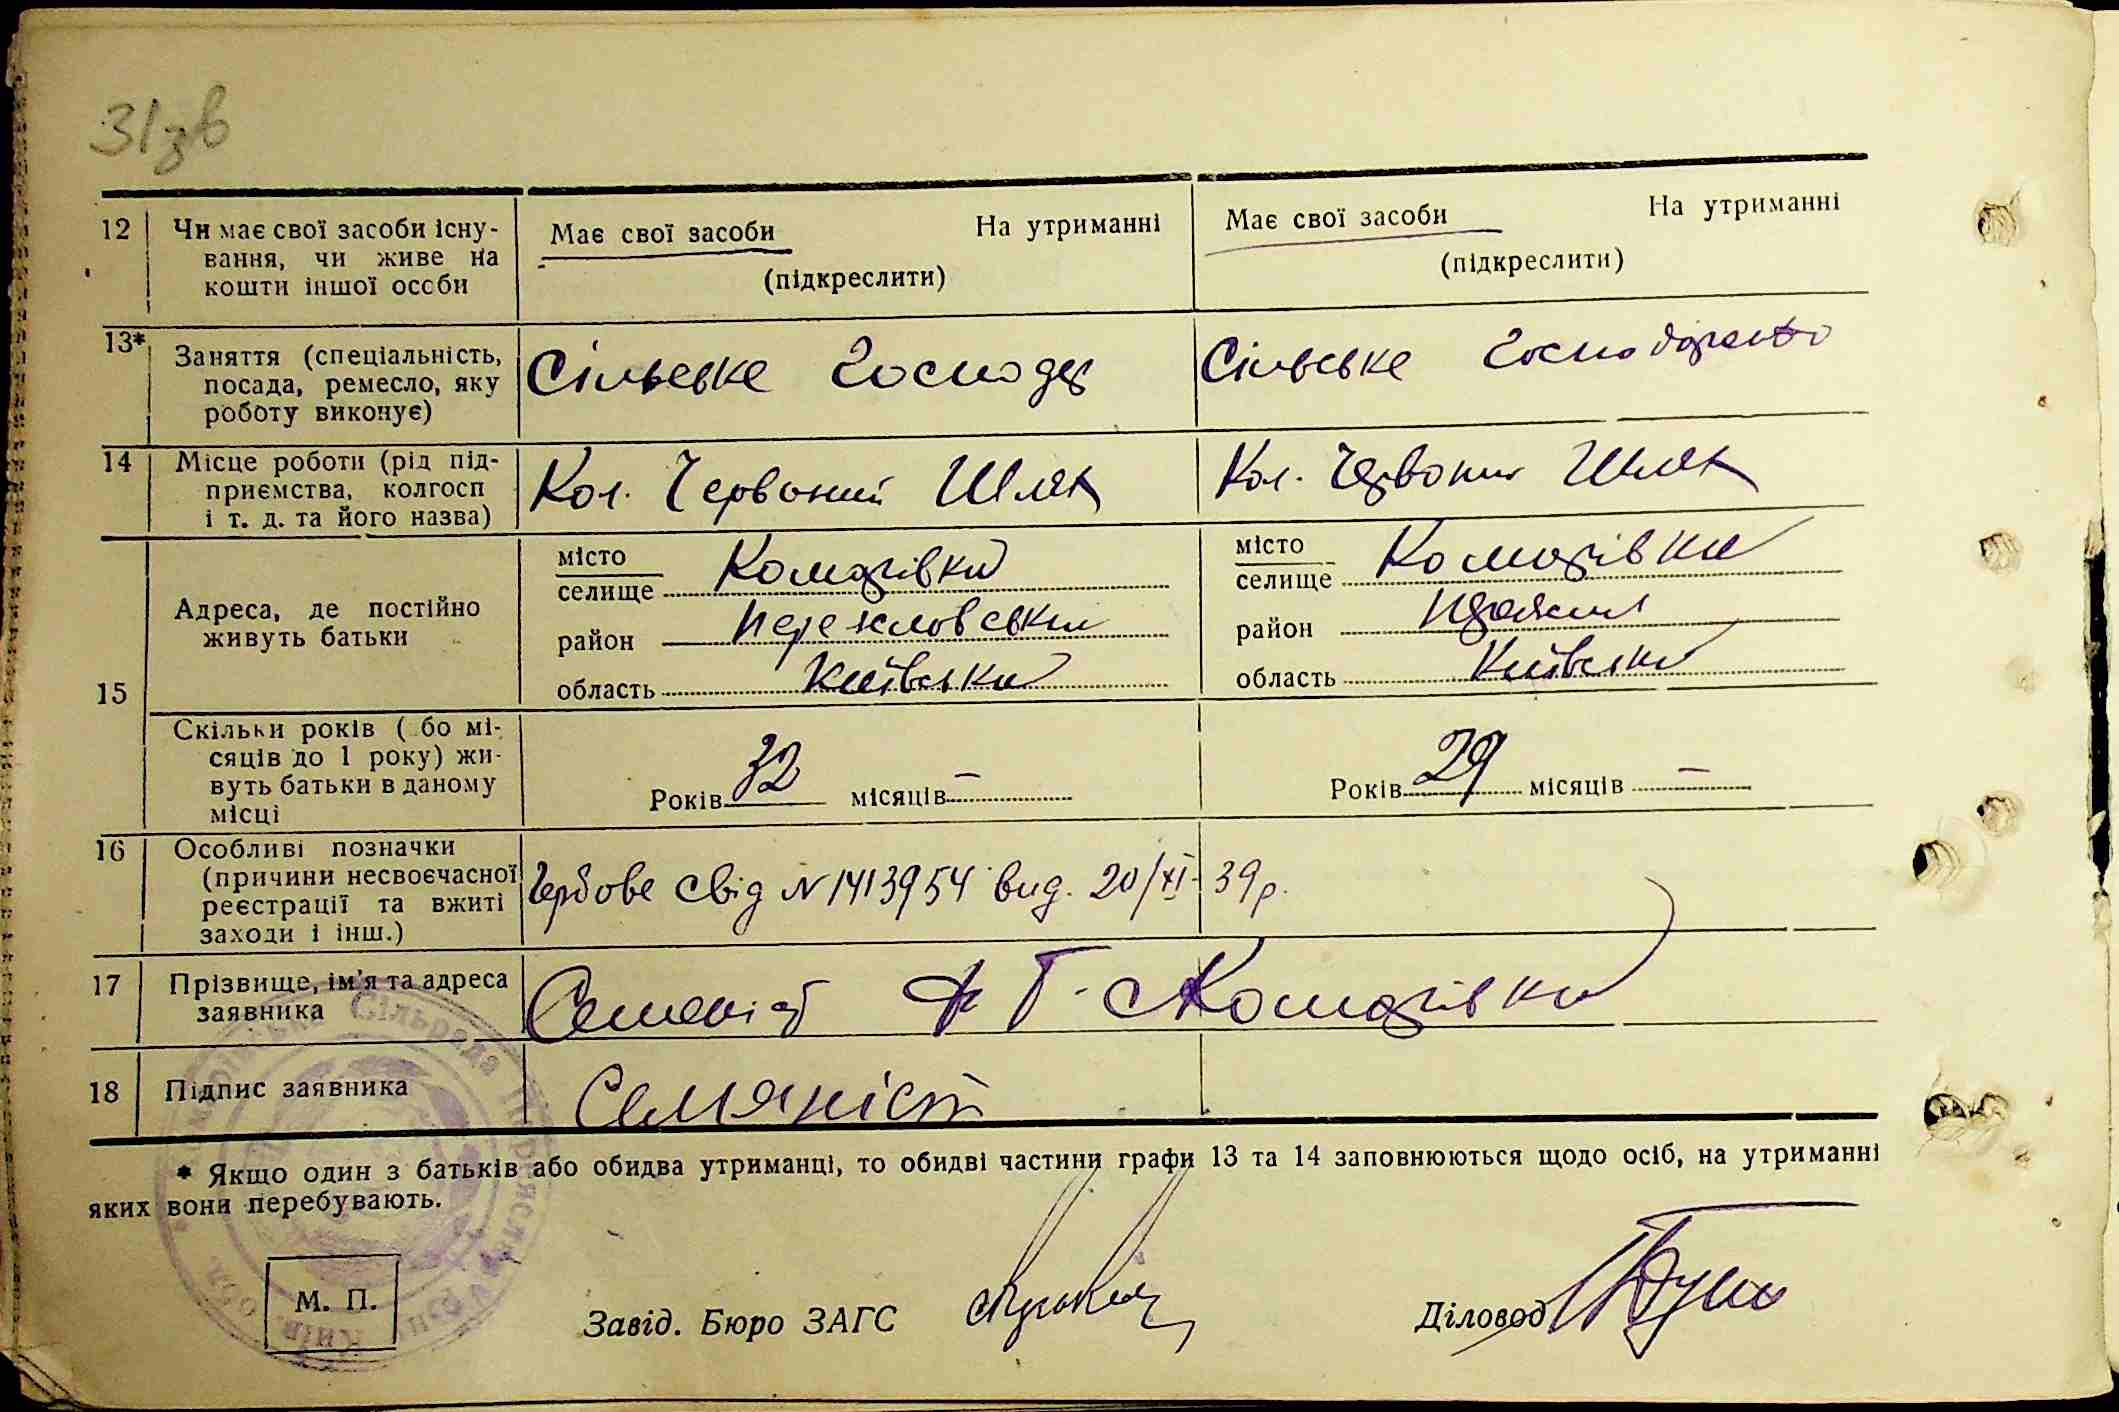 31зв
12 Чи має свої засоби існу-
вання, чи живе на
кошти іншої особи
Має свої засоби На утриманні
(підкреслити)
Має свої засоби На утриманні
(підкреслити)
13* Заняття (спеціальність,
посада, ремесло, яку
роботу виконує)
Сільське господар
Сільське господарство
14 Місце роботи (рід під-
приємства, колгосп
і т. д. та його назва)
Кол. Червоний Шлях
Кол. Червоний Шлях
15 Адреса, де постійно
живуть батьки
місто
селище Комарівка
район Переяславський
область Київська
місто
селище Комарівка
район
область Київська
Скільки років (або мі-
сяців до 1 року) жи-
вуть батьки в даному
місці
Років 32 місяців —
Років 29 місяців —
16 Особливі позначки
(причини несвоєчасної
реєстрації та вжиті
заходи і інш.)
Гербове свід № 1413954 вид. 20/XI-39р.
17 Прізвище, ім'я та адреса
заявника
Г. с Комарівка
18 Підпис заявника
Семяніст
* Якщо один з батьків або обидва утриманці, то обидві частини графи 13 та 14 заповнюються щодо осіб, на утриманні
яких вони перебувають.
М. П.
Завід. Бюро ЗАГС
Діловод